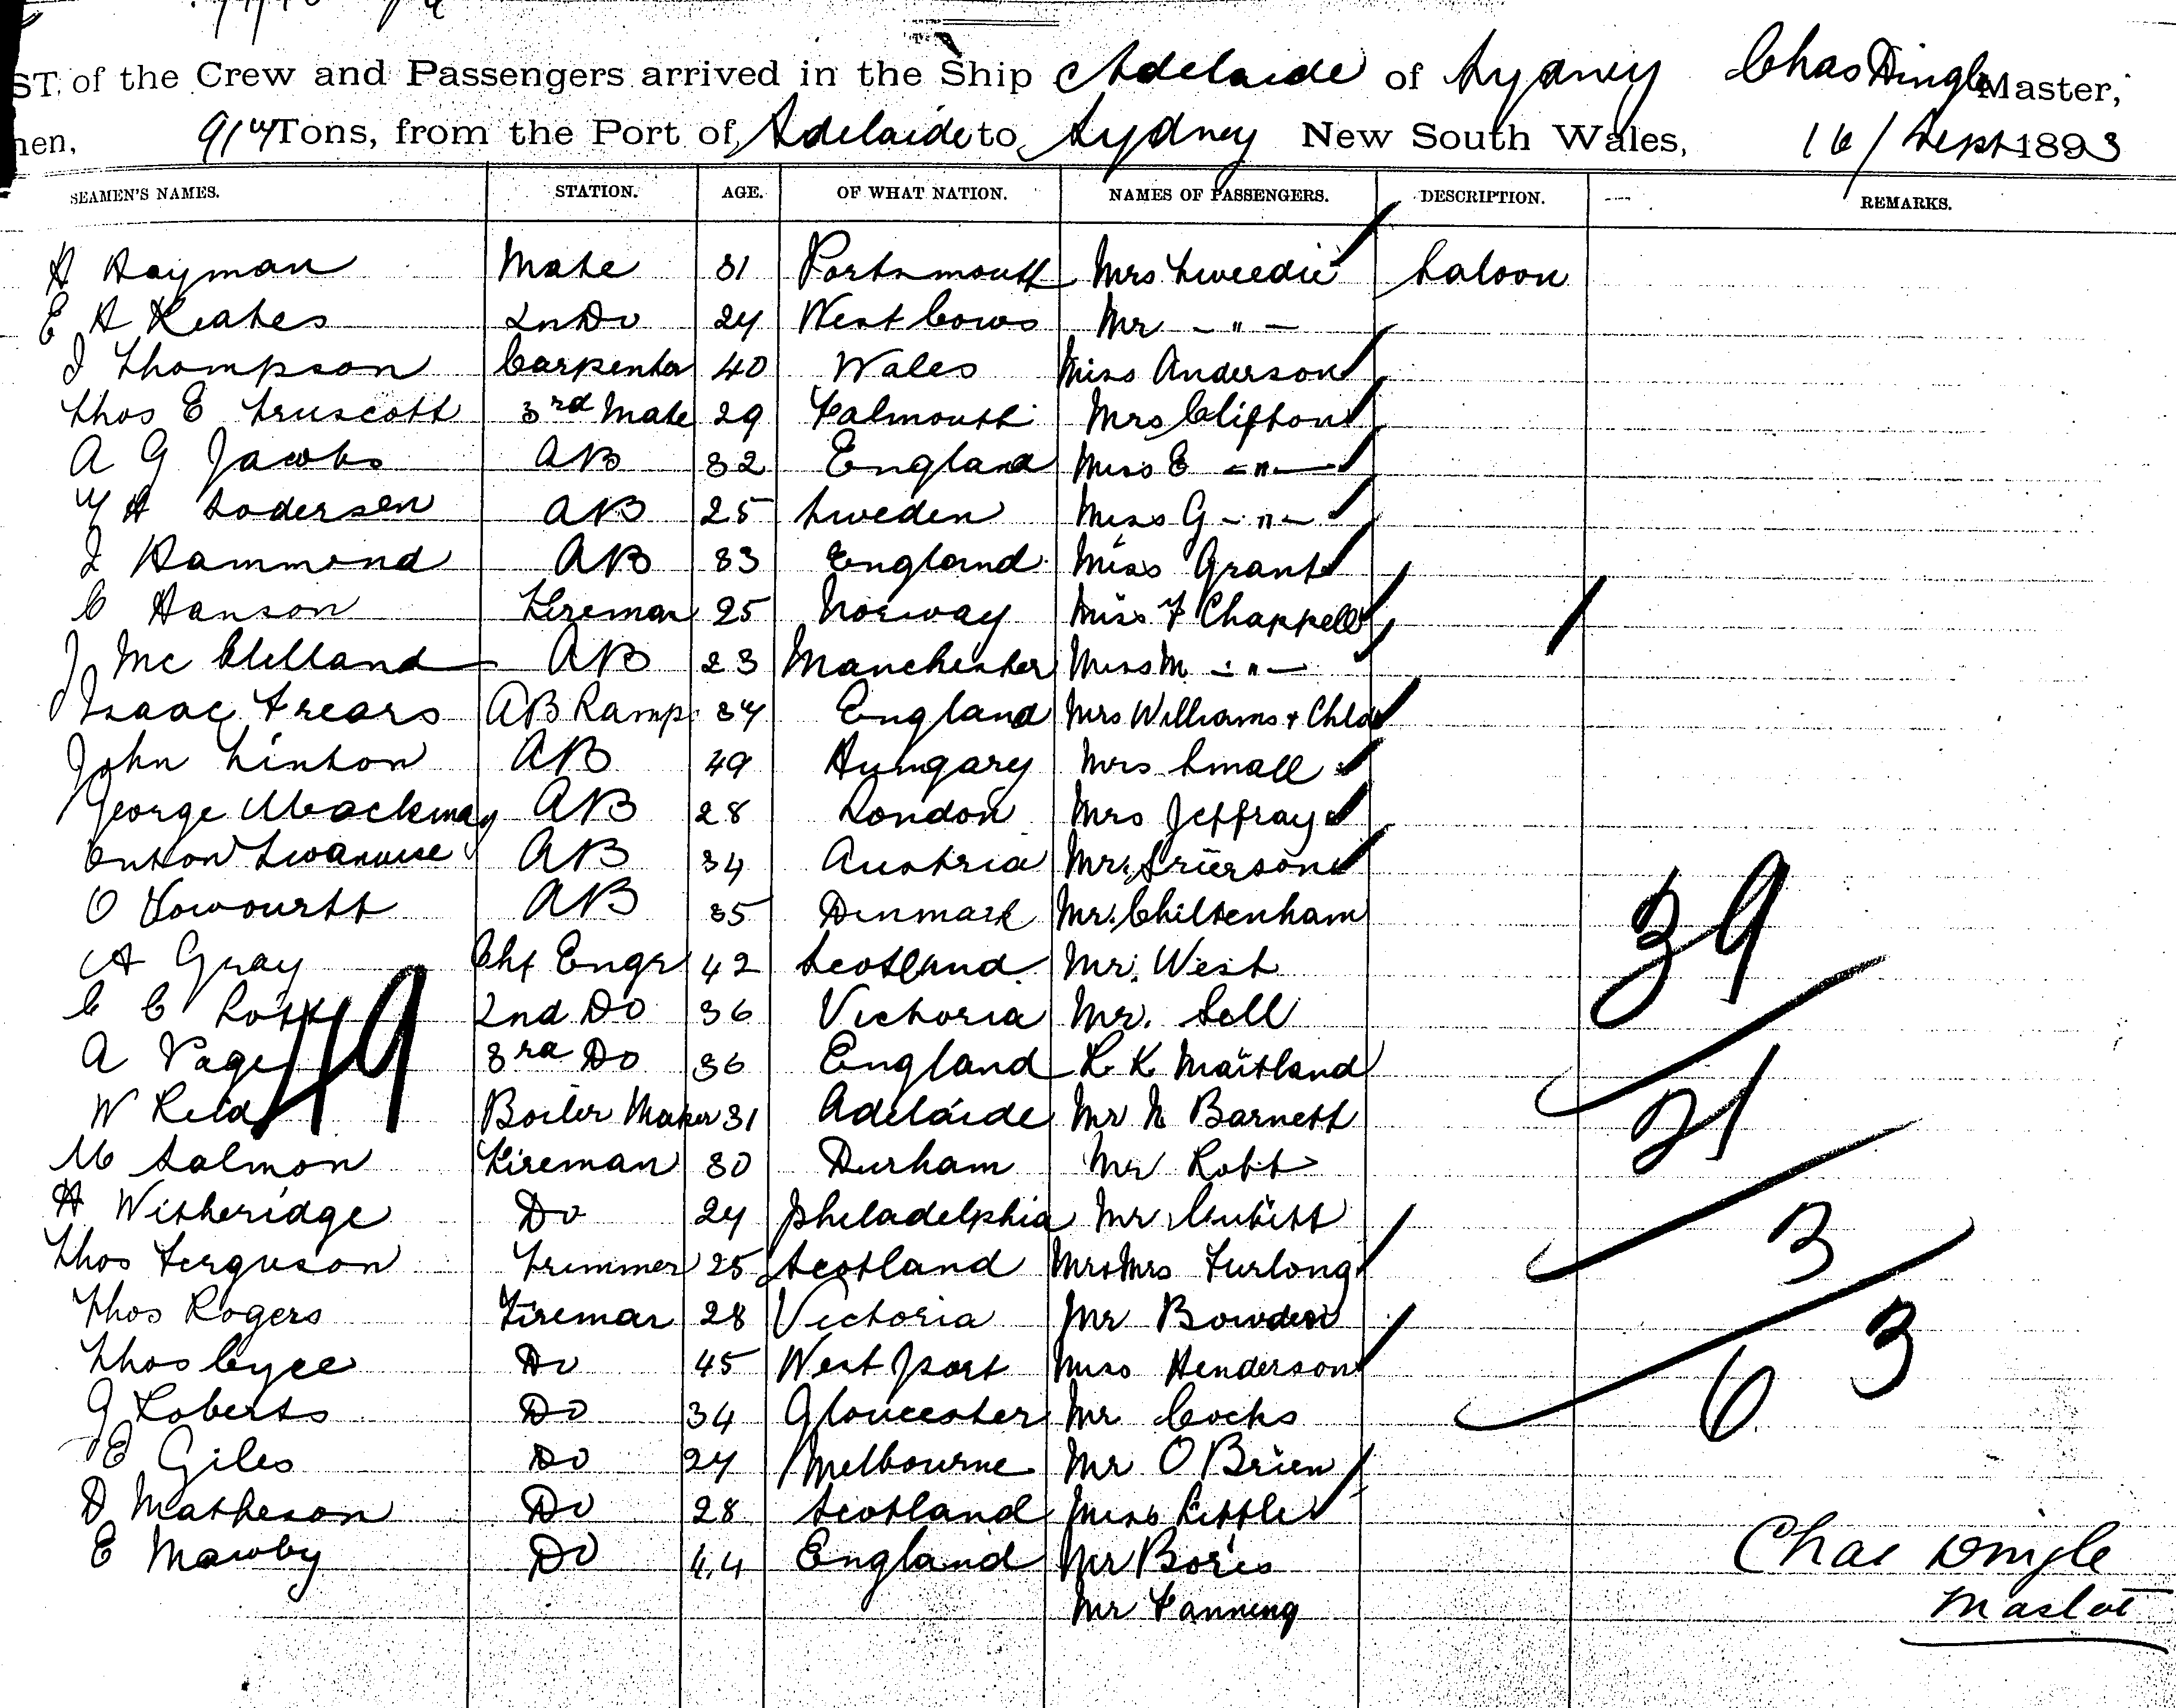 ST. of the Crew and Passengers arrived in the Ship Adelaide of Sydney Chas Dingle Master,
men, Tons, from the Port of Adelaide to Sydney New South Wales, 16/Sept 1893
SEAMEN'S NAMES. STATION. AGE. OF WHAT NATION. NAMES OF PASSENGERS. DESCRIPTION. REMARKS.
H Hayman Mate 31 Portsmouth Mrs Tweedie Saloon
E H Keates 2nd Do 24 West Cows Mr - " -
J Thompson Carpenter 40 Wales Miss Anderson
Thos E Truscott 3rd Mate 29 Falmouth Mrs Clifton
A G Jacobs AB 32 England Miss E - " -
H Sodersen AB 25 Sweden Miss G - " -
J Hammond AB 33 England Miss Grant
C Hanson Fireman 25 Norway Miss F Chappell
J Mc Clelland AB 23 Manchester Miss M - " -
Isaac Frears AB Lamp 34 England Mrs Williams + Chld
John Linton AB 49 Hungary Mrs Small
George Mackway AB 28 London Mrs Jeffray
AB 34 Austria Mr Grierson
O AB 35 Denmark Mr. Chiltenham
A Gray Chf Engr 42 Scotland Mr. West
C C 2nd Do 36 Victoria Mr. Sell
A Page 3rd Do 36 England R K Maitland
W Reid Boiler Maker 31 Adelaide Mr N Barnett
M Salmon Fireman 30 Durham Mr Robt
H Witheridge Do 24 Philadelphia Mr Cubitt
Thos Ferguson Trimmer 25 Scotland Mr & Mrs Furlong
Thos Rogers Fireman 28 Victoria Mr Bowden
Thos Do 45 West port Miss Henderson
J Roberts Do 34 Gloucester Mr Cocks
E Giles Do 24 Melbourne Mr O Brien
D Matheson Do 28 Scotland Miss Kettle
E Mawby Do 44 England Mr Boris
Mr Fanning
49
39
21
3
3
6
Chas Dingle
Master